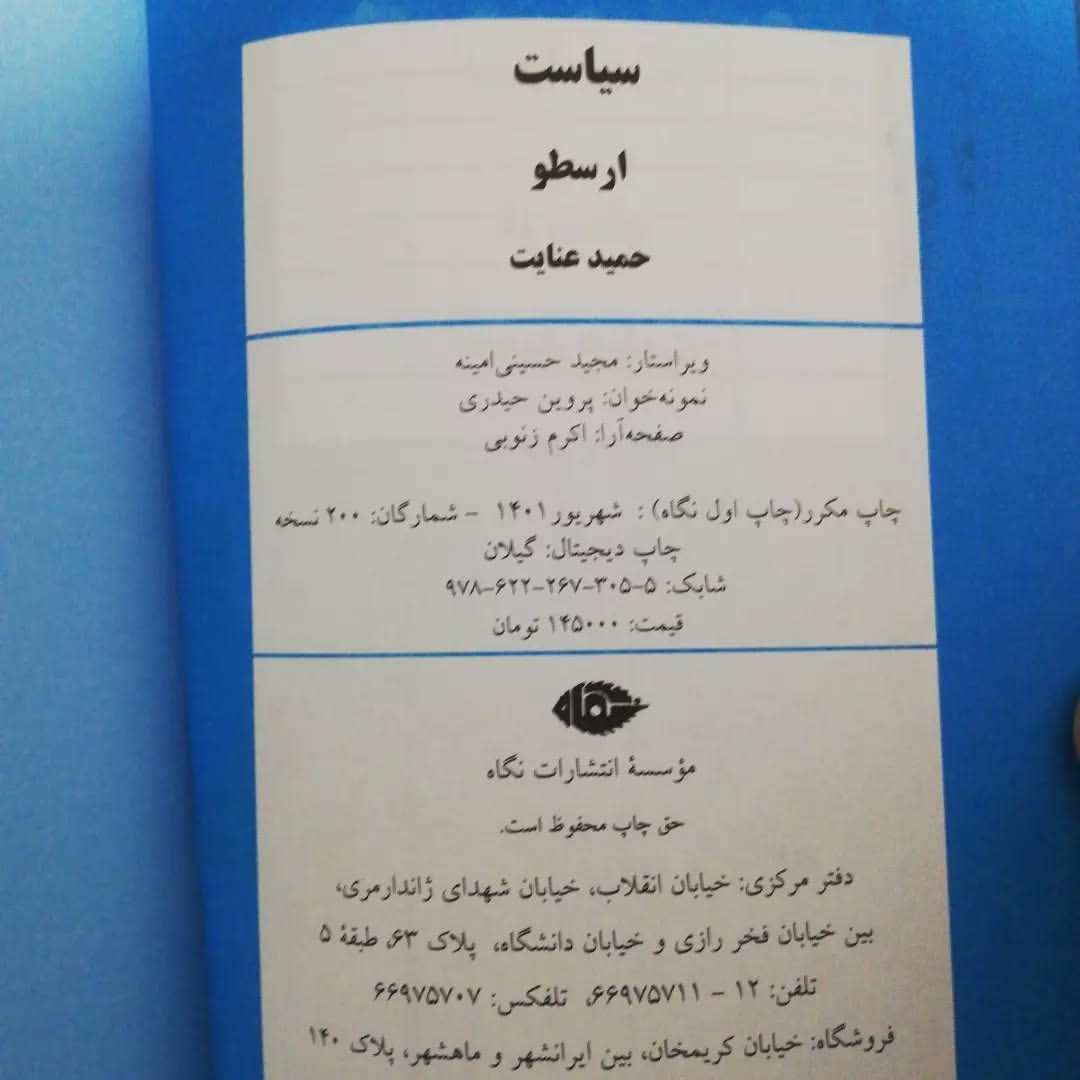 سیاست
ارسطو
حمید عنایت
ویراستار: مجید حسینی‌امینه
نمونه‌خوان: پروین حیدری
صفحه‌آرا: اکرم زنوبی
چاپ مکرر(چاپ اول نگاه) : شهریور ۱۴۰۱ - شمارگان: ۲۰۰ نسخه
چاپ دیجیتال: گیلان
شابک: ۵-۳۰۵-۲۶۷-۶۲۲-۹۷۸
قیمت: ۱۴۵۰۰۰ تومان
نگاه
مؤسسهٔ انتشارات نگاه
حق چاپ محفوظ است.
دفتر مرکزی: خیابان انقلاب، خیابان شهدای ژاندارمری،
بین خیابان فخر رازی و خیابان دانشگاه، پلاک ۶۳، طبقهٔ ۵
تلفن: ۱۲ - ۶۶۹۷۵۷۱۱، تلفکس: ۶۶۹۷۵۷۰۷
فروشگاه: خیابان کریمخان، بین ایرانشهر و ماهشهر، پلاک ۱۴۰